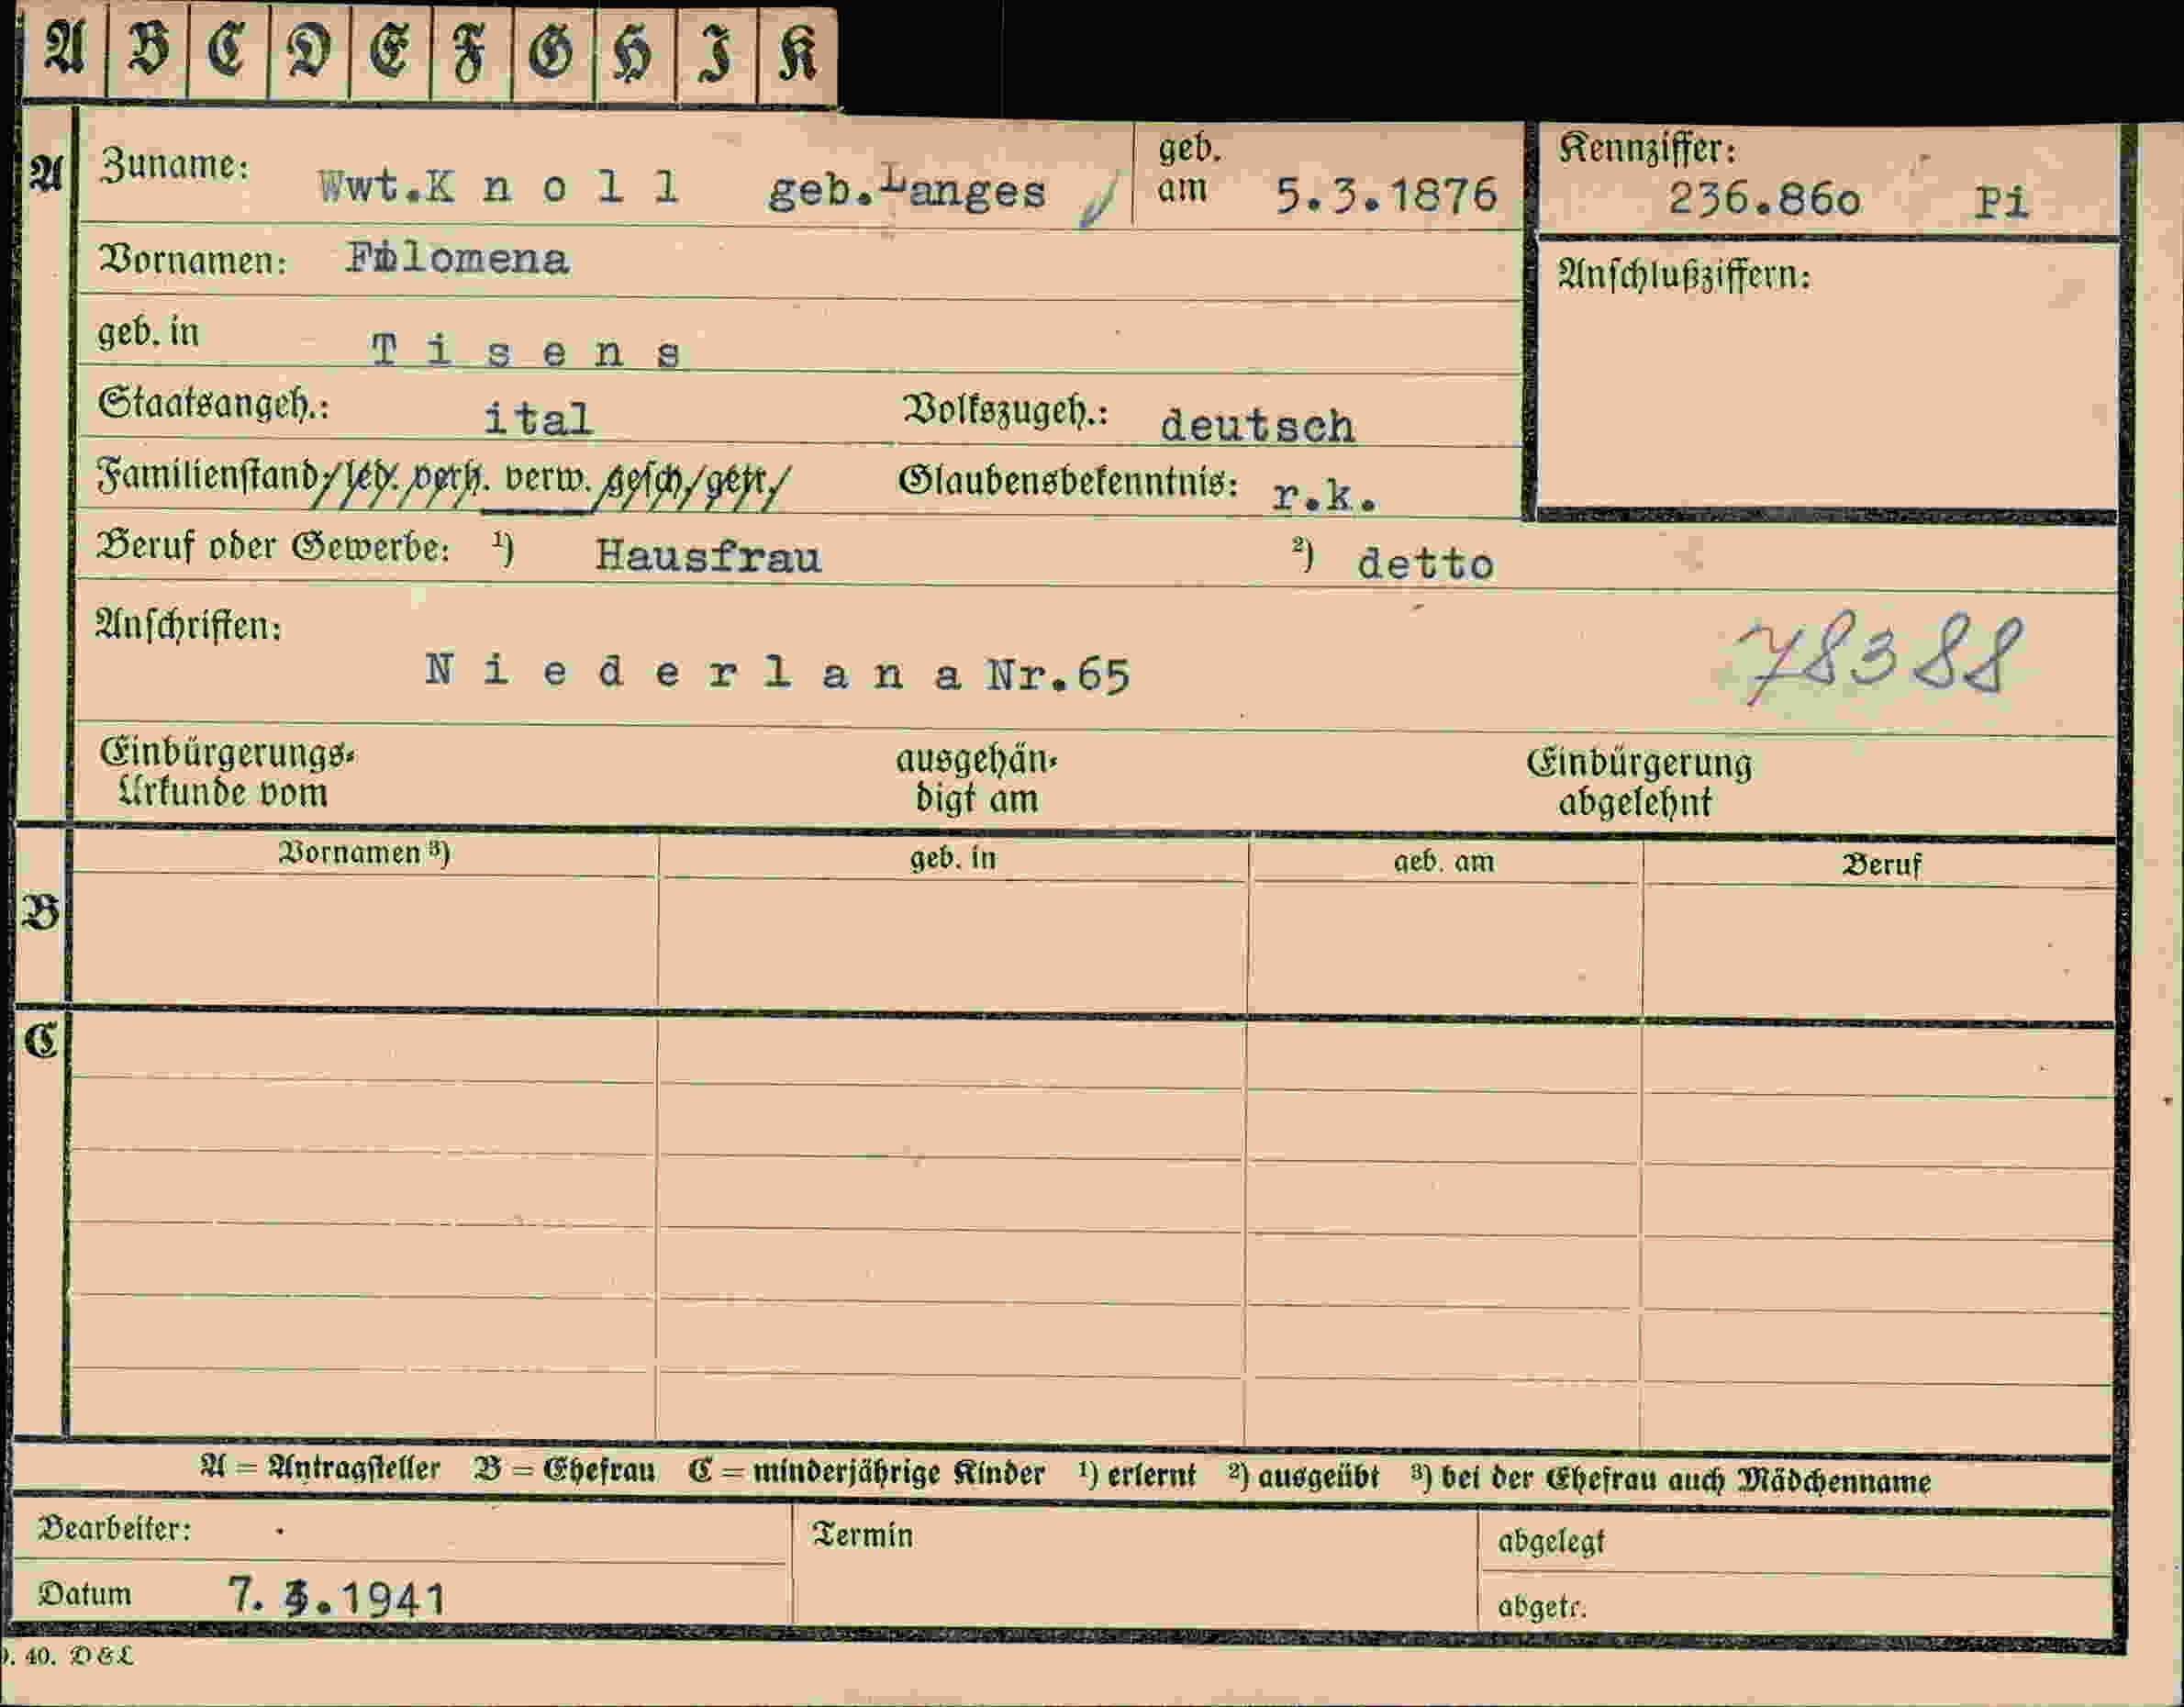 A B C D E F G H I K
A Zuname: Wwt.K n o l l geb.Langes geb. am 5.3.1876
Kennziffer: 236.86o Pi
Vornamen: Filomena
Anschlußziffern:
geb. in T i s e n s
Staatsangeh.: ital Volkszugeh.: deutsch
Familienstand: led. verh. verw. gesch. getr. Glaubensbekenntnis: r.k.
Beruf oder Gewerbe: ¹) Hausfrau ²) detto
Anschriften:
N i e d e r l a n a Nr.65 78388
Einbürgerungs-Urkunde vom ausgehändigt am Einbürgerung abgelehnt
Vornamen ³) geb. in geb. am Beruf
B
C
A = Antragsteller B = Ehefrau C = minderjährige Kinder ¹) erlernt ²) ausgeübt ³) bei der Ehefrau auch Mädchenname
Bearbeiter: Termin abgelegt
Datum 7. 3.1941 abgetr.
40. D&L